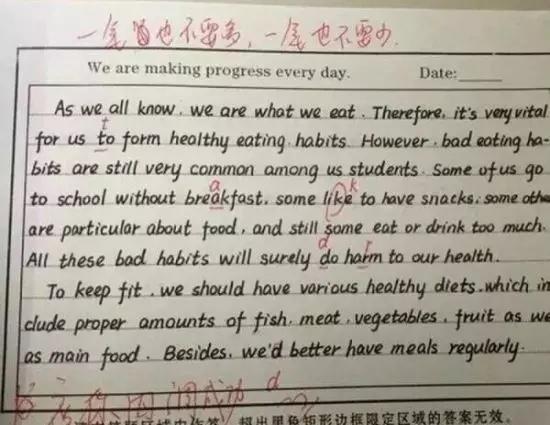 一定也不要多,一定也不要少.
We are making progress every day. Date:
As we all know, we are what we eat. Therefore, it's very vital
t
for us to form healthy eating habits. However, bad eating ha-
bits are still very common among us students. Some of us go
a k
to school without breakfast, some like to have snacks, some othe
are particular about food, and still some eat or drink too much.
d r
All these bad habits will surely do harm to our health.
To keep fit, we should have various healthy diets, which in
clude proper amounts of fish, meat, vegetables, fruit as we
as main food. Besides, we'd better have meals regularly.
d
超出黑色矩形边框限定区域的答案无效。